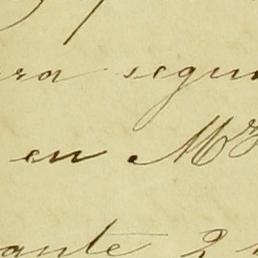 ra segu
en Mr
ante 2